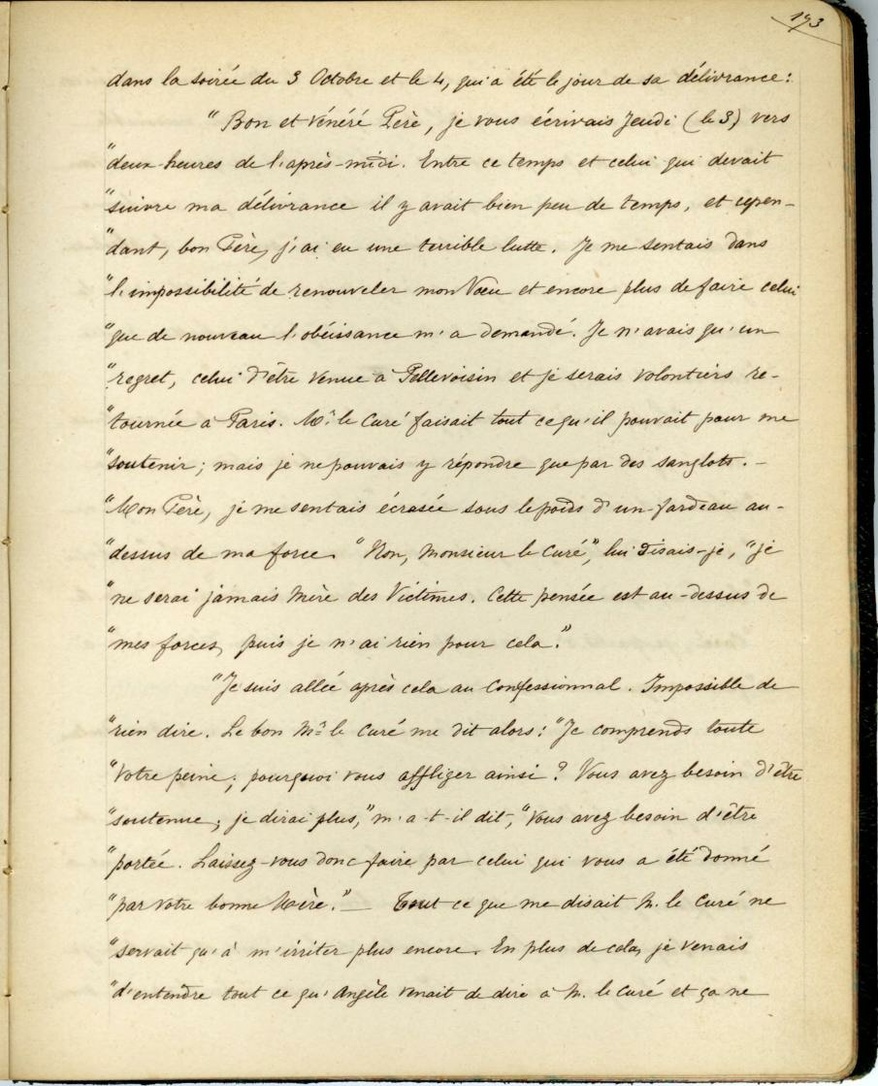 193
dans la soirée du 3 Octobre et le 4, qui a été le jour de sa délivrance:
"Bon et Vénéré Père, je vous écrivais Jeudi (le 3) vers
"deux heures de l'après-midi. Entre ce temps et celui qui devait
"suivre ma délivrance il y avait bien peu de temps, et cepen-
"dant, bon Père, j'ai eu une terrible lutte. Je me sentais dans
"l'impossibilité de renouveler mon Vœu et encore plus de faire celui
"que de nouveau l'obéissance m'a demandé. Je n'avais qu'un
"regret, celui d'être venue à Pellevoisin et je serais volontiers re-
"tournée à Paris. Mr le Curé faisait tout ce qu'il pouvait pour me
"soutenir; mais je ne pouvais y répondre que par des sanglots. –
"Mon Père, je me sentais écrasée sous le poids d'un fardeau au-
"dessus de ma force. "Non, Monsieur le Curé", lui disais-je, "je
"ne serai jamais Mère des Victimes. Cette pensée est au-dessus de
"mes forces, puis je n'ai rien pour cela."
"Je suis allée après cela au Confessionnal. Impossible de
"rien dire. Le bon Mr le Curé me dit alors: "Je comprends toute
"votre peine; pourquoi vous affliger ainsi? Vous avez besoin d'être
"soutenue; je dirai plus," m'a-t-il dit, "vous avez besoin d'être
"portée. Laissez-vous donc faire par celui qui vous a été donné
"par votre bonne Mère." — Tout ce que me disait M. le Curé ne
"servait qu'à m'irriter plus encore. En plus de cela, je venais
"d'entendre tout ce qu'Angèle venait de dire à M. le Curé et ça ne